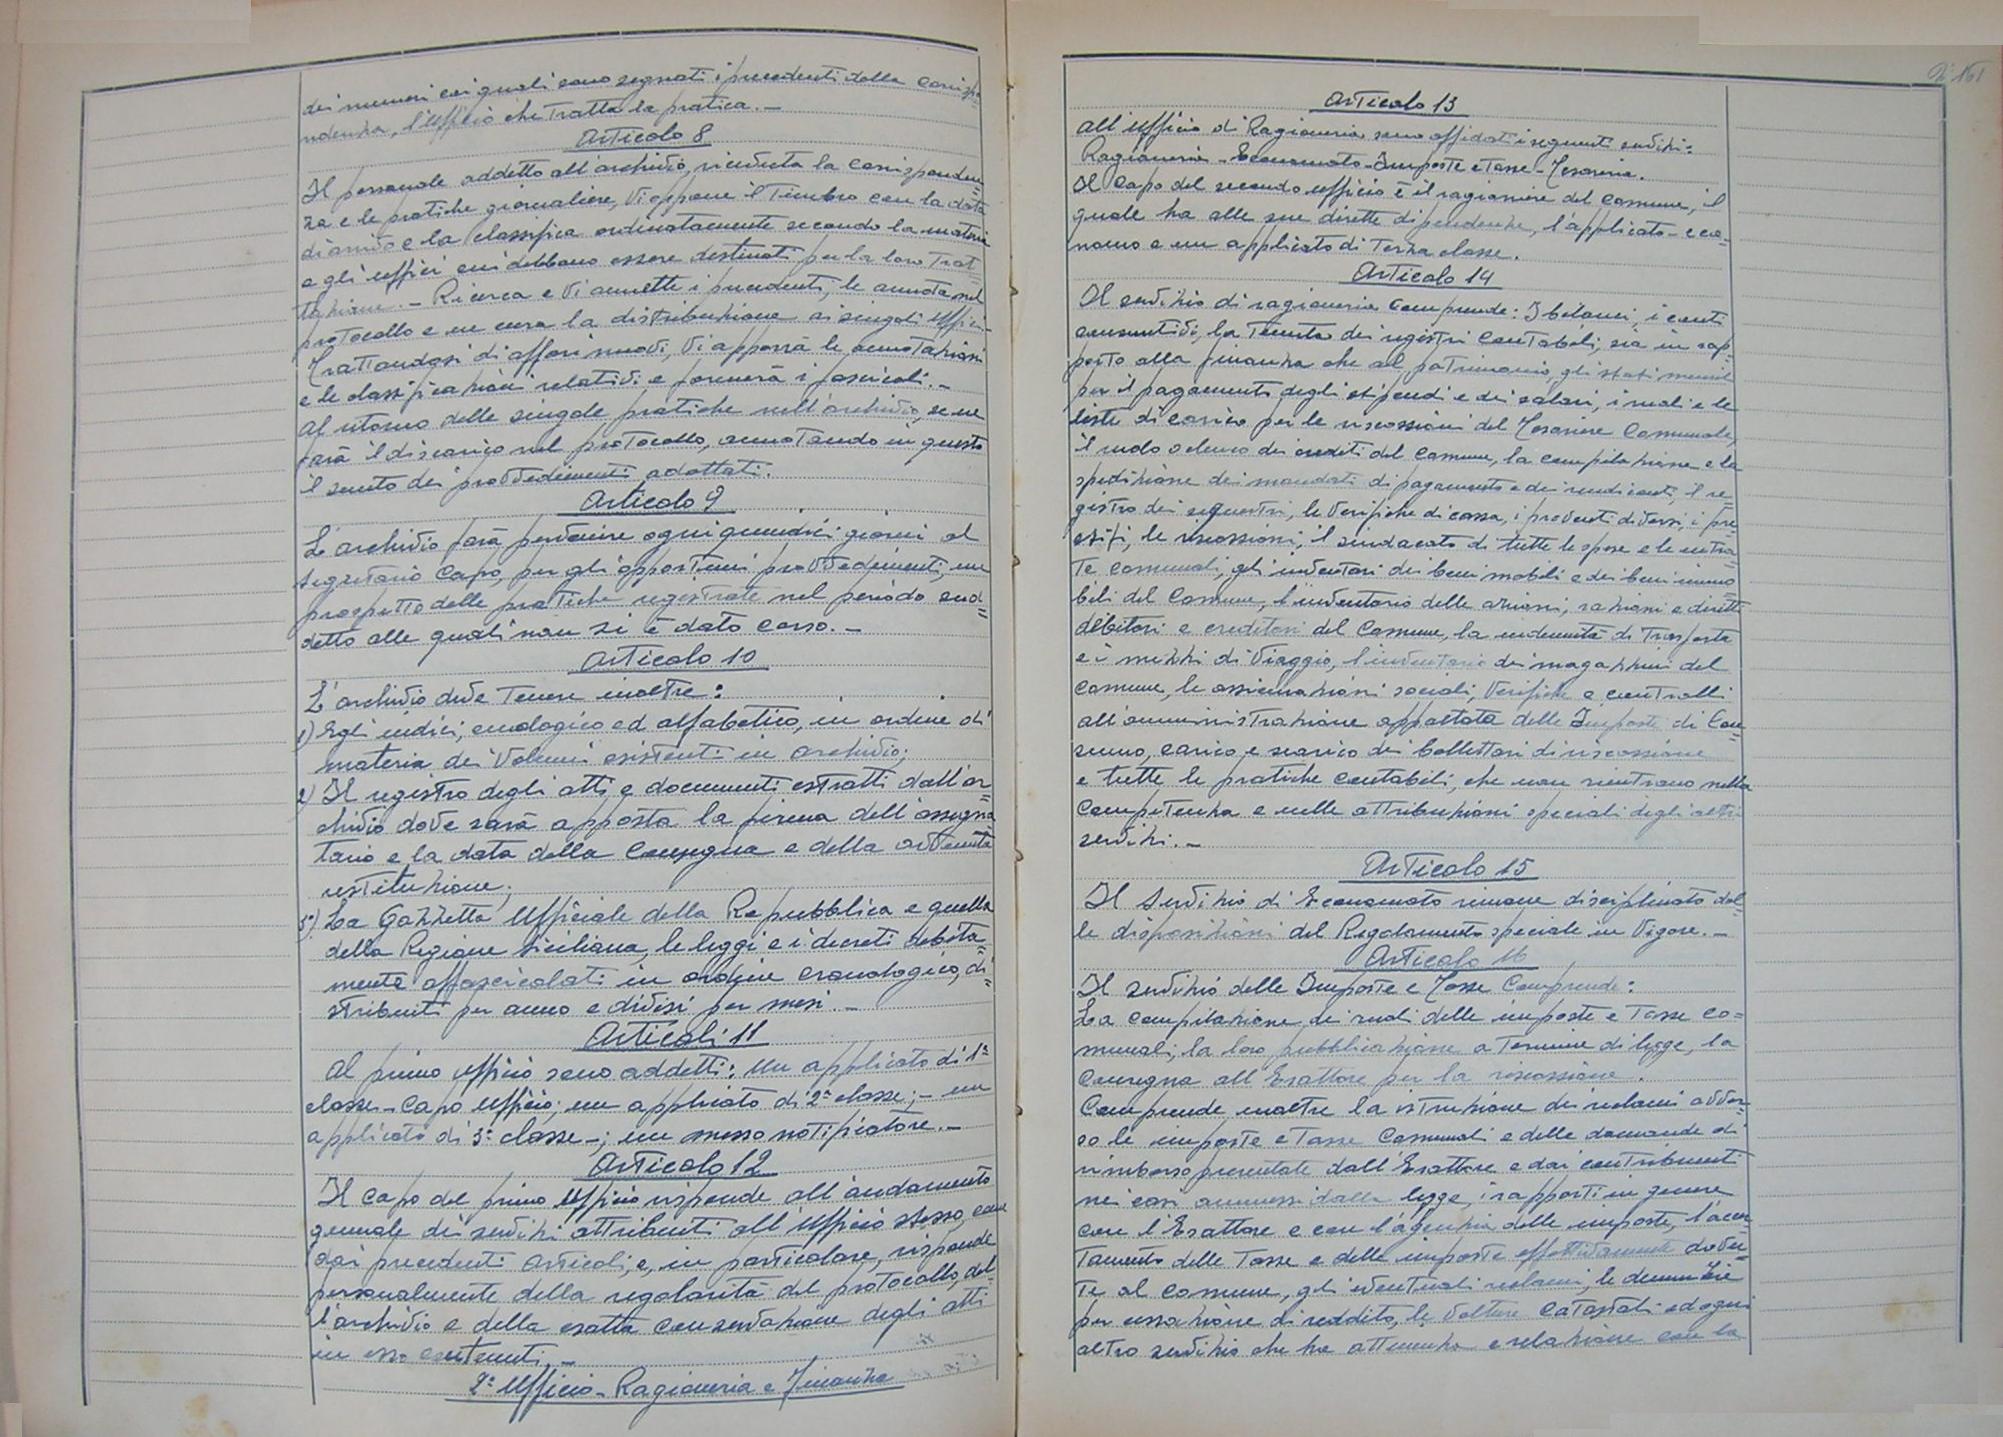 dei numeri coi quali sono segnati i precedenti della corrispo
ndenza, l'ufficio che tratta la pratica.-
Articolo 8
Il personale addetto all'archivio, ricevuta la corrisponden=
za e le pratiche giornaliere, vi appone il timbro con la data
di arrivo e la classifica ordinatamente secondo la materia
e gli uffici cui debbano essere destinati per la loro trat=
tazione.- Ricerca e vi annette i precedenti, le annota nel
protocollo e ne cura la distribuzione ai singoli uffici.-
Trattandosi di affari nuovi, vi apporrà le annotazioni
e le classificazioni relative e formerà i fascicoli.-
Al ritorno delle singole pratiche nell'archivio, se ne
farà il discarico nel protocollo, annotando in questo
il sunto dei provvedimenti adottati.
Articolo 9
L'archivio farà pervenire ogni quindici giorni al
Segretario Capo, per gli opportuni provvedimenti, un
prospetto delle pratiche registrate nel periodo sud=
detto alle quali non si è dato corso.-
Articolo 10
L'archivio deve tenere inoltre:
1) Egli indici, cnologico ed alfabetico, in ordine di
materia dei volumi esistenti in archivio;
2) Il registro degli atti e documenti estratti dall'ar=
chivio dove sarà apposta la firma dell'assegna
tario e la data della consegna e della avvenuta
restituzione;
3°) La Gazzetta Ufficiale della Repubblica e quella
della Regione Siciliana, le leggi e i decreti debita=
mente affascicolati in ordine cronologico, di=
stribuiti per anno e divisi per mesi.-
Articoli 11
Al primo ufficio sono addetti: Un applicato di 1ª
classe-Capo Ufficio; un applicato di 2ª classe;- un
applicato di 3ª classe-; un messo notificatore.-
Articolo 12
Il Capo del primo Ufficio risponde all'andamento
generale dei servizi attribuiti all'Ufficio stesso, come
dai precedenti articoli, e, in particolare, risponde
personalmente della regolarità del protocollo, del=
l'archivio e della esatta conservazione degli atti
in esso contenuti.-
2° Ufficio-Ragioneria e Finanza
Articolo 13
All'Ufficio di Ragioneria sono affidati i seguenti servizi:
Ragioneria-Economato-Imposte e Tasse-Tesoreria.
Il Capo del secondo ufficio è il ragioniere del Comune, il
quale ha alle sue dirette dipendenze, l'applicato-eco=
nomo e un applicato di terza classe.
Articolo 14
Il servizio di ragioneria comprende: I bilanci, i conti
consuntivi, la tenuta dei registri contabili, sia in rap=
porto alla finanza che al patrimonio, gli stati mensili
per il pagamento degli stipendi e dei salari, i ruoli e le
liste di carico per le riscossioni del Tesoriere Comunale,
il ruolo o elenco dei crediti del Comune, la compilazione e la
spedizione dei mandati di pagamento e dei rendiconti, il re=
gistro dei sequestri, le verifiche di cassa, i proventi diversi, i pre=
stiti, le riscossioni, il sindacato di tutte le spese e le entra=
te comunali, gli inventari dei beni mobili e dei beni immo
bili del Comune, l'inventario delle azioni, ragioni e diritti
debitori e creditori del Comune, la indennità di trasferta
e i mezzi di viaggio, l'inventario dei magazzini del
Comune, le assicurazioni sociali, verifiche e controlli
all'amministrazione appaltata delle Imposte di Con=
sumo, carico e scarico dei bollettari di riscossione
e tutte le pratiche contabili, che non rientrano nella
competenza e nelle attribuzioni speciali degli altri
servizi.-
Articolo 15
Il servizio di Economato rimane disciplinato dal=
le disposizioni del Regolamento speciale in vigore.-
Articolo 16
Il servizio delle Imposte e Tasse comprende:
La compilazione dei ruoli delle imposte e tasse co=
munali, la loro pubblicazione a termine di legge, la
consegna all'Esattore per la riscossione.
Comprende inoltre la istruzione dei reclami avver=
so le imposte e tasse comunali e delle domande di
rimborso presentate dall'Esattore e dai contribuenti
nei casi ammessi dalla legge, i rapporti in genere
con l'Esattore e con l'agenzia delle imposte, l'accer=
tamento delle tasse e delle imposte effettivamente dovu=
te al Comune, gli eventuali reclami, le denunzie
per cessazione di reddito, le volture catastali ed ogni
altro servizio che ha attinenza e relazione con la